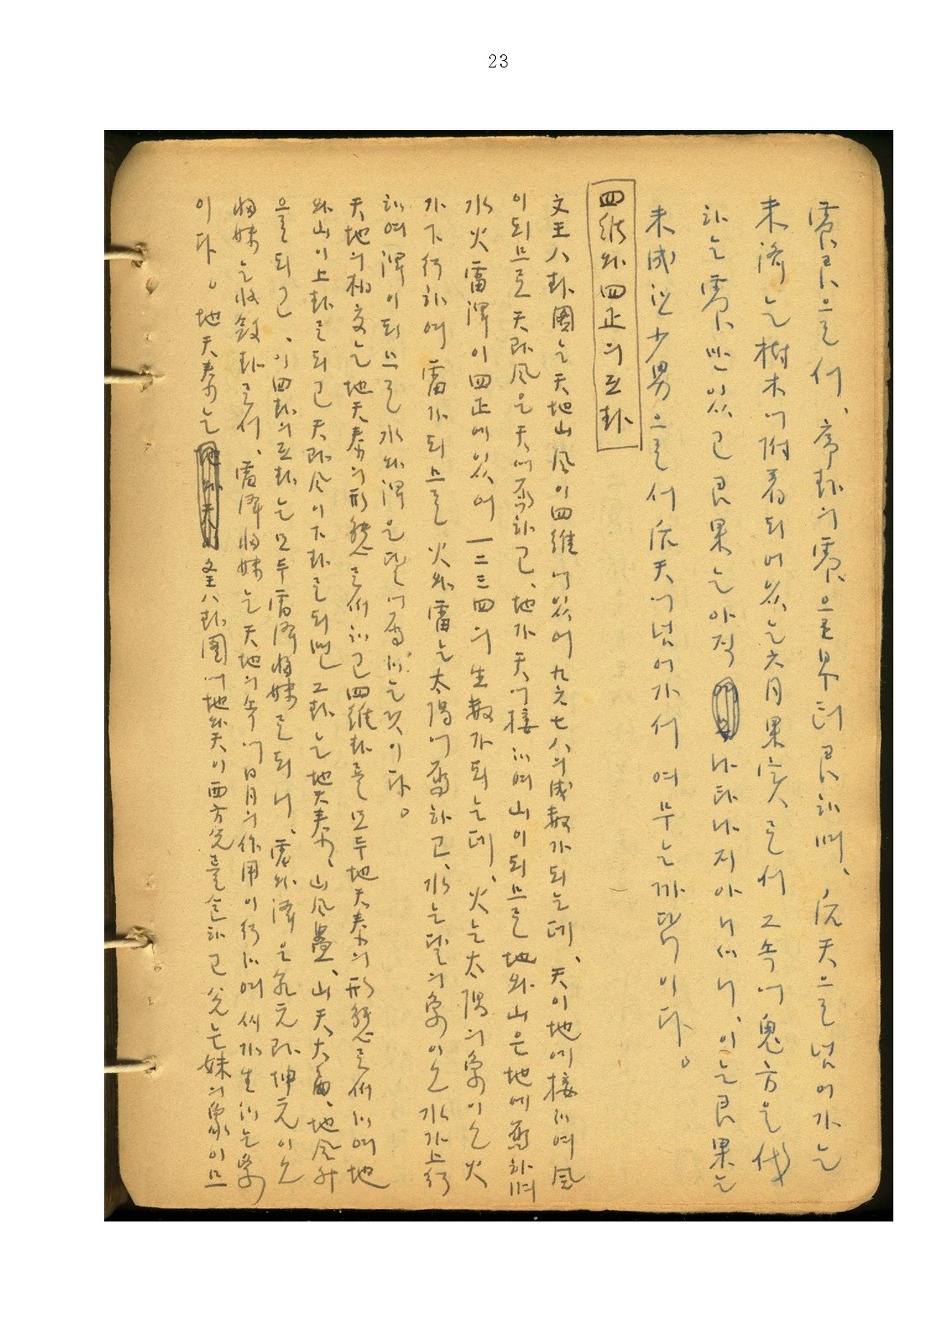 23
震艮으로서、序卦의震으로부터艮하며、后天으로넘어가는
未濟는樹木에附着되어있는六月果實로서그속에鬼方을伐
하는震下만있고艮果는아직 나타나지아니하니、이는艮果는
未成한少男으로서后天에넘어가서여무는까닭이다。
四維와四正의互卦
文王八卦圖는天地山風이四維에있어九六七八의成數가되는데、天이地에接하여風
이되므로天과風은天에屬하고、地가天에接하여山이되므로地와山은地에屬하며
水火雷澤이四正에있어一二三四의生數가되는데、火는太陽의象이오火
가下行하여雷가되므로火와雷는太陽에屬하고、水는달의象이오水가上行
하여澤이되므로水와澤은달에屬하는것이다。
天地의相交는地天泰의形態로서하고四維卦를모두地天泰의形態로서하여地
와山이上卦로되고天과風이下卦로되면그卦는地天泰、山風蠱、山天大畜、地風升
으로되고、이四卦의互卦는모두雷澤歸妹로되니、雷와澤은乾元과坤元이오
歸妹는收斂卦로서、雷澤歸妹는天地의속에日月의作用이行하며씨가生하는象
이다。地天泰는 文王八卦圖에地와天이西方兌를含하고兌는妹의象이므